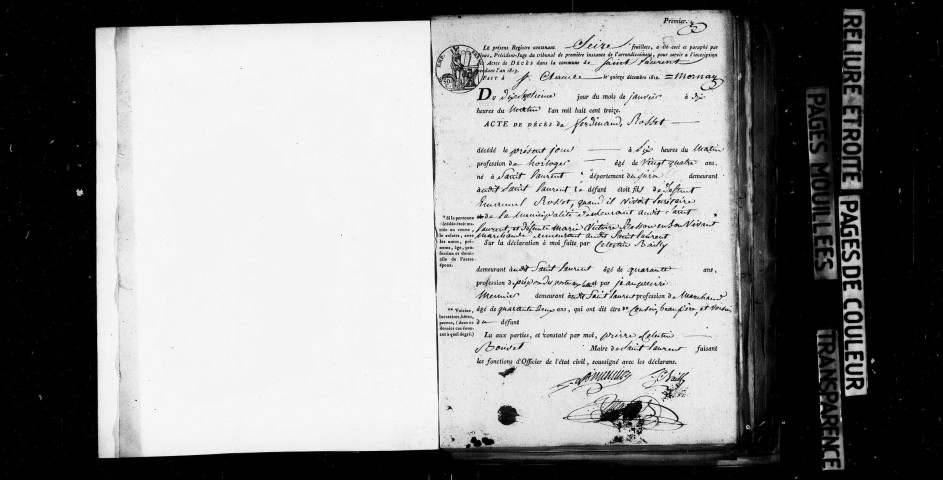 Premier.
LE présent Registre contenant Seize feuillets, a été coté et paraphé par
Nous, Président-Juge du tribunal de première instance de l'arrondissement, pour servir à l'inscription
des Actes de DÉCÈS dans la commune de Saint Laurent
pendant l'an 1813.
FAIT À St. Claude le quinze décembre 1812. = Monnay
DU dix septieme jour du mois de janvier à dix
heures du Matin l'an mil huit cent treize.
ACTE DE DÉCÈS de ferdinand, Rosset
décédé le présent jour à Six heures du Matin
profession de horloger âgé de Vingt quatre ans,
né à Saint laurent département du jura demeurant
audit Saint laurent le défunt étoit fils de deffunt
Emmanuel Rosset, quand il vivoit Secrétaire
de la municipalité demeurant audit Saint
laurent, et deffunte Marie Victoire en Son Vivant
Marchande demeurant audit Saint laurent
* Si la personne
décédée était ma-
riée ou veuve,
le relater, avec
les noms, pré-
noms, âge, pro-
fession et domi-
cile de l'autre
époux.
Sur la déclaration à moi faite par Celestin Bailly
demeurant audit Saint laurent âgé de quarante ans,
profession de et par jean pierre
Meunier demeurant audit Saint laurent profession de Marchand
âgé de quarante deux ans, qui ont dit être ** Cousin, beau frere, et Voisin
du défunt
** Voisins,
locataires, hôtes,
parens, (dans ce
dernier cas énon-
cer à quel degré.)
Lu aux parties, et constaté par moi, pierre Celestin
Bouvet Maire de Saint laurent faisant
les fonctions d'Officier de l'état civil, soussigné avec les déclarans.
Bailly
RELIURE ETROITE
PAGES MOUILLES
PAGES DE COULEUR
TRANSPARENCE